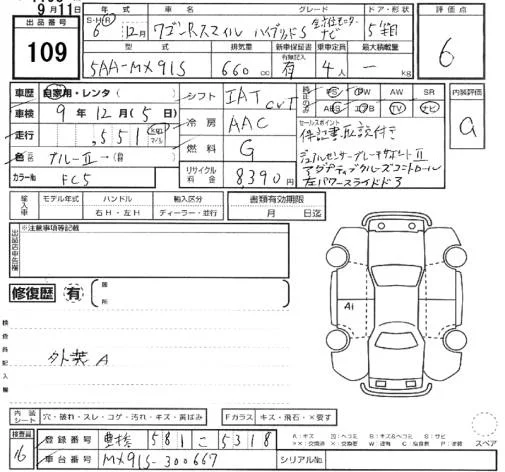 9月11日
出品番号
109
年式 車名 グレード ドア・形状 評価点
S・H・R 6 12月 ワゴンRスマイル ハイブリッドS 全方位モニターナビ 5 6
型式 排気量 新車保証書 乗車定員 最大積載量
有無記入
5AA-MX91S 660cc 有 4人 — kg
車歴 自家用・レンタ シフト IAT CVT PS PW AW SR 内装評価
車検 9年12月(5日) 冷房 AAC ABS エアB TV ナビ a
走行 ,551 セールスポイント
保証書取説付キ
色 ブルーII 燃料 G デュアルセンサーブレーキサポートII
アダプティブクルーズコントロール
カラーNo FC5 リサイクル料金 8,390円 左パワースライドドア
輸入車 モデル年式 ハンドル 輸入区分 書類有効期限
右H・左H ディーラー・並行 月 日迄
出品店申告欄 ※注意事項等記載
修復歴 有 箇所
検査員記入欄
外装A
A1
内装シート 穴・破れ・スレ・コゲ・汚れ・キズ・黄ばみ Fガラス キズ・飛石・×要す
スペア
検査員 16 登録番号 豊橋 581 こ 5318
車台番号 MX91S-300667 シリアルNo.